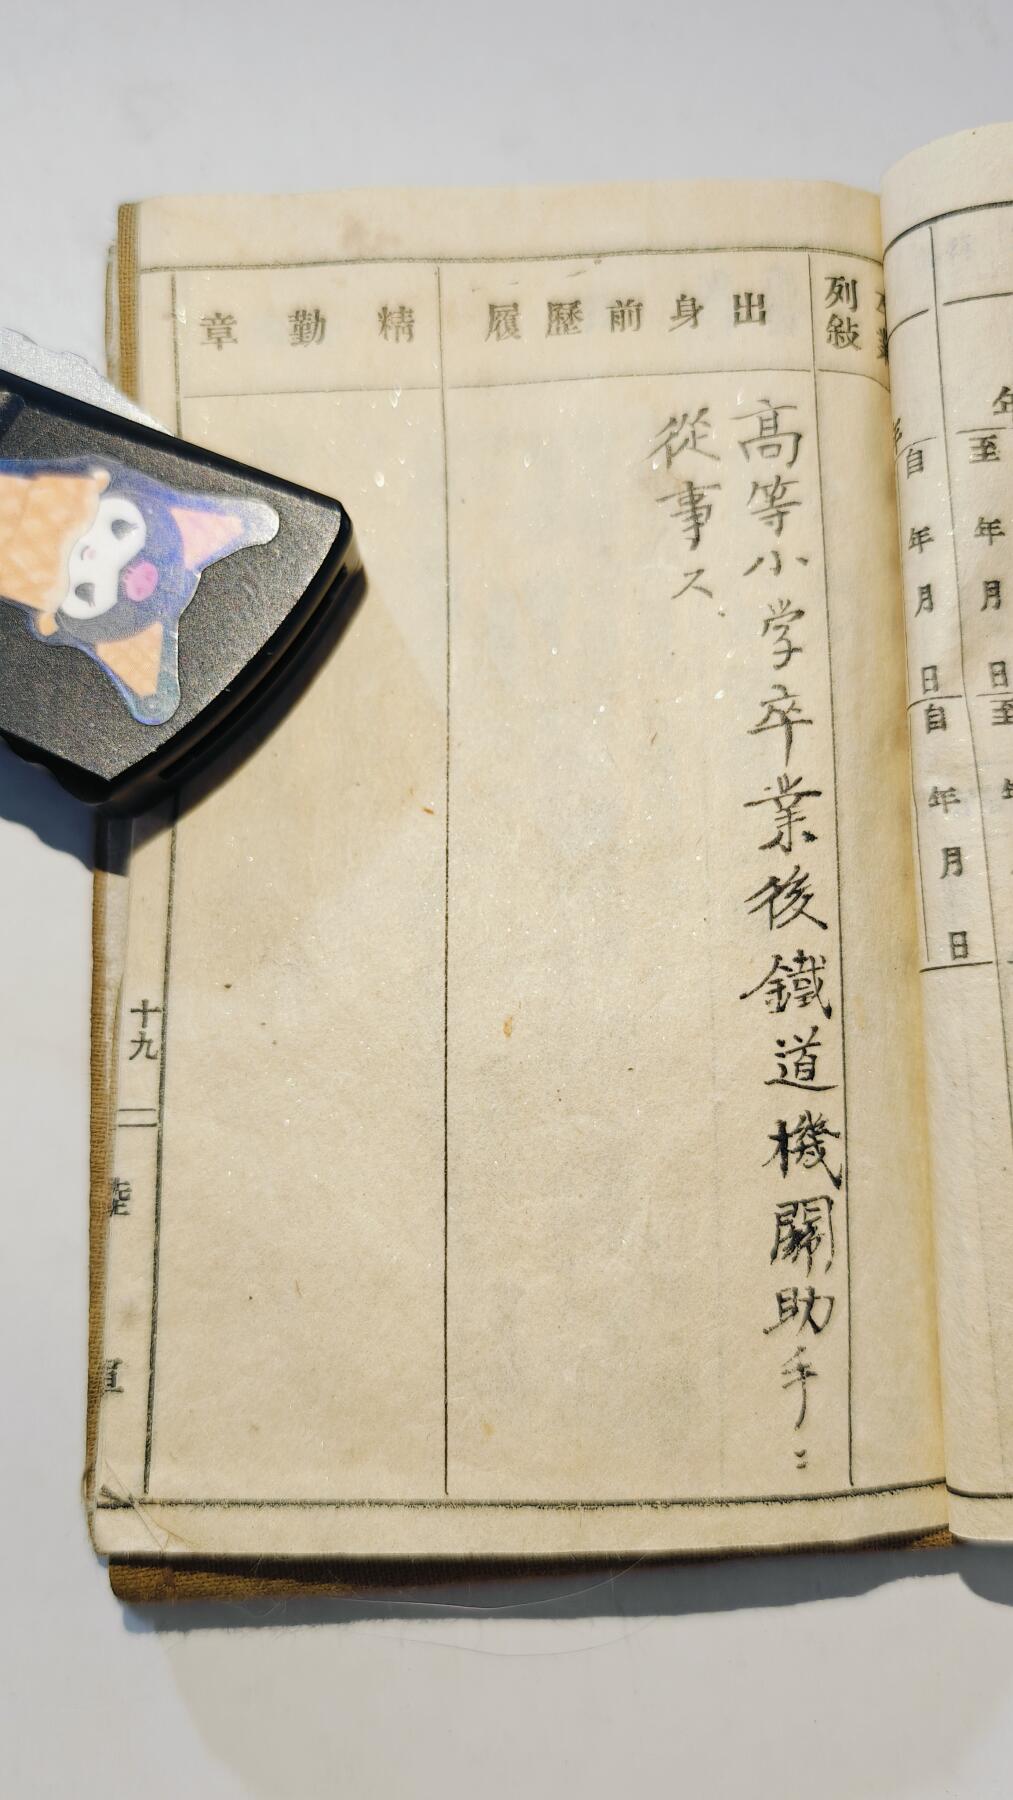 年
至 年 月 日
至 年
自 年 月 日
自 年 月 日
列敍
出身前歷履
高等小学卒業後鐵道機關助手ニ
從事ス
精勤章
十九
陸
軍